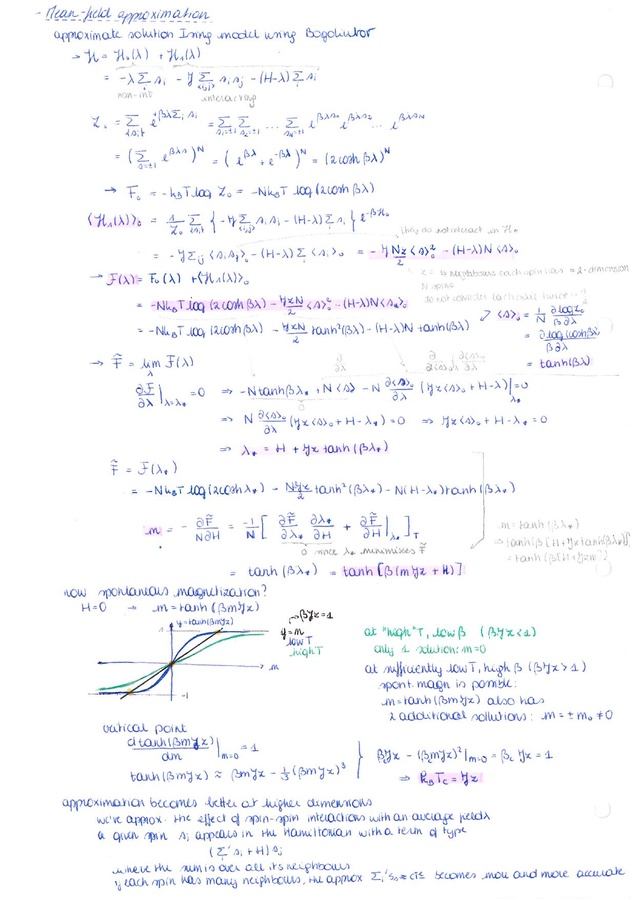 - Mean-field approximation
approximate solution Ising model using Bogoliubov
→ H = H₀(λ) + H₁(λ)
= -λ Σ_i s_i - J Σ_<ij> s_i s_j - (H-λ) Σ_i s_i
non-int interacting
Z₀ = Σ_{s_i} e^{βλ Σ_i s_i} = Σ_{s₁=±1} Σ_{s₂=±1} ... Σ_{s_N=±1} e^{βλs₁} e^{βλs₂} ... e^{βλs_N}
= (Σ_{s=±1} e^{βλs})^N = (e^{βλ} + e^{-βλ})^N = (2cosh βλ)^N
→ F₀ = -k_BT log Z₀ = -Nk_BT log(2cosh βλ)
<H₁(λ)>₀ = 1/Z₀ Σ_{s_i} { -J Σ s_i s_j - (H-λ) Σ_i s_i } e^{-βH₀}
they do not interact in H₀
= -J Σ_ij <s_i s_j>₀ - (H-λ) Σ_i <s_i>₀ = -J Nz/2 <s>₀² - (H-λ)N <s>₀
→ F(λ) = F₀(λ) + <H₁(λ)>₀
N spins
= -Nk_BT log(2cosh βλ) - JzN/2 <s>₀² - (H-λ)N<s>₀
= -Nk_BT log(2cosh βλ) - JzN/2 tanh²(βλ) - (H-λ)N tanh(βλ)
<s>₀ = 1/N ∂log Z₀/β∂λ
= ∂log(cosh βλ)/β∂λ
= tanh(βλ)
→ F̃ = min_λ F(λ)
∂F/∂λ |_{λ=λ*} = 0 ⇒ -N tanh βλ* + N<s> - N ∂<s>₀/∂λ (Jz<s>₀ + H-λ)|_{λ*} = 0
⇒ N ∂<s>₀/∂λ (Jz<s>₀ + H-λ*) = 0 ⇒ Jz<s>₀ + H-λ* = 0
⇒ λ* = H + Jz tanh(βλ*)
F̃ = F(λ*)
= -Nk_BT log(2cosh λ*) - NJz/2 tanh²(βλ*) - N(H-λ*) tanh(βλ*)
m = - ∂F̃/N∂H = -1/N [ ∂F̃/∂λ* ∂λ*/∂H + ∂F̃/∂H |_{λ*} ]_T
0 since λ* minimizes F̃
m = tanh(βλ*)
= tanh(β[H+Jz tanh(βλ*)])
= tanh(β[H+Jzm])
= tanh(βλ*) = tanh[β(mJz + H)]
now spontanous magnetization?
H=0 → m = tanh(βmJz)
y=tanh(βmJz)
→ βJz=1
y=m
low T
high T
1
m
-1
at "high" T, low β (βJz<1)
only 1 solution: m=0
at sufficiently low T, high β (βJz>1)
spont. magn is possible:
m = tanh(βmJz) also has
2 additional sollutions: m = ± m₀ ≠ 0
critical point
d tanh(βmJz)/dm |_{m=0} = 1
tanh(βmJz) ≈ βmJz - 1/3(βmJz)³
βJz - (βmJz)²|_{m=0} = β_c Jz = 1
⇒ k_BT_C = Jz
approximation becomes better at higher dimensions
we're approx. the effect of spin-spin interactions with an average field
a given spin s_j appears in the Hamiltonian with a term of type
(Σ_i' s_i + H) s_j
where the sum is over all its neighbours
if each spin has many neighbours, the approx Σ_i' s_i ≈ c<s> becomes more and more accurate